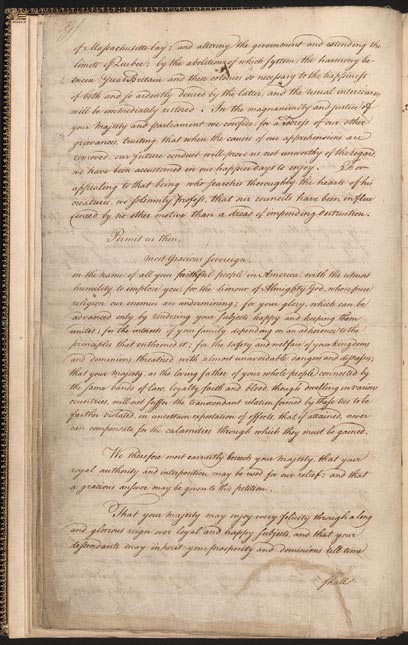 of Massachusetts-bay; and altering the government and extending the
limits of Quebec; by the abolition of which system, the harmony be-
tween Great Britain and these colonies so necessary to the happiness
of both and so ardently desired by the latter, and the usual intercourses
will be immediately restored. In the magnanimity and justice of
your majesty and parliament we confide, for a redress of our other
grievances, trusting, that when the causes of our apprehensions are
removed, our future conduct will prove us not unworthy of the regard,
we have been accustomed in our happier days to enjoy. For
appealing to that being who searches thoroughly the hearts of his
creatures, we solemnly profess, that our councils have been influ-
enced by no other motive than a dread of impending destruction.
Permit us then,
most gracious sovereign,
in the name of all your faithful people in America, with the utmost
humility to implore you, for the honour of Almighty God, whose pure
religion our enemies are undermining; for your glory, which can be
advanced only by rendering your subjects happy and keeping them
united; for the interests of your family depending on an adherence to the
principles that enthroned it; for the safety and welfare of your kingdoms
and dominions threatned with almost unavoidable dangers and distresses;
that your majesty, as the loving father of your whole people connected by
the same bands of law, loyalty, faith and blood though dwelling in various
countries, will not suffer the transcendant relation formed by these ties to be
farther violated, in uncertain expectation of effects, that, if attained, never
can compensate for the calamities, through which they must be gained.
We therefore most earnestly beseech your majesty, that your
royal authority and interposition may be used for our relief; and that
a gracious answer may be given to this petition.
That your majesty may enjoy every felicity through a long
and glorious reign over loyal and happy subjects, and that your
descendants may inherit your prosperity and dominions till time
shall